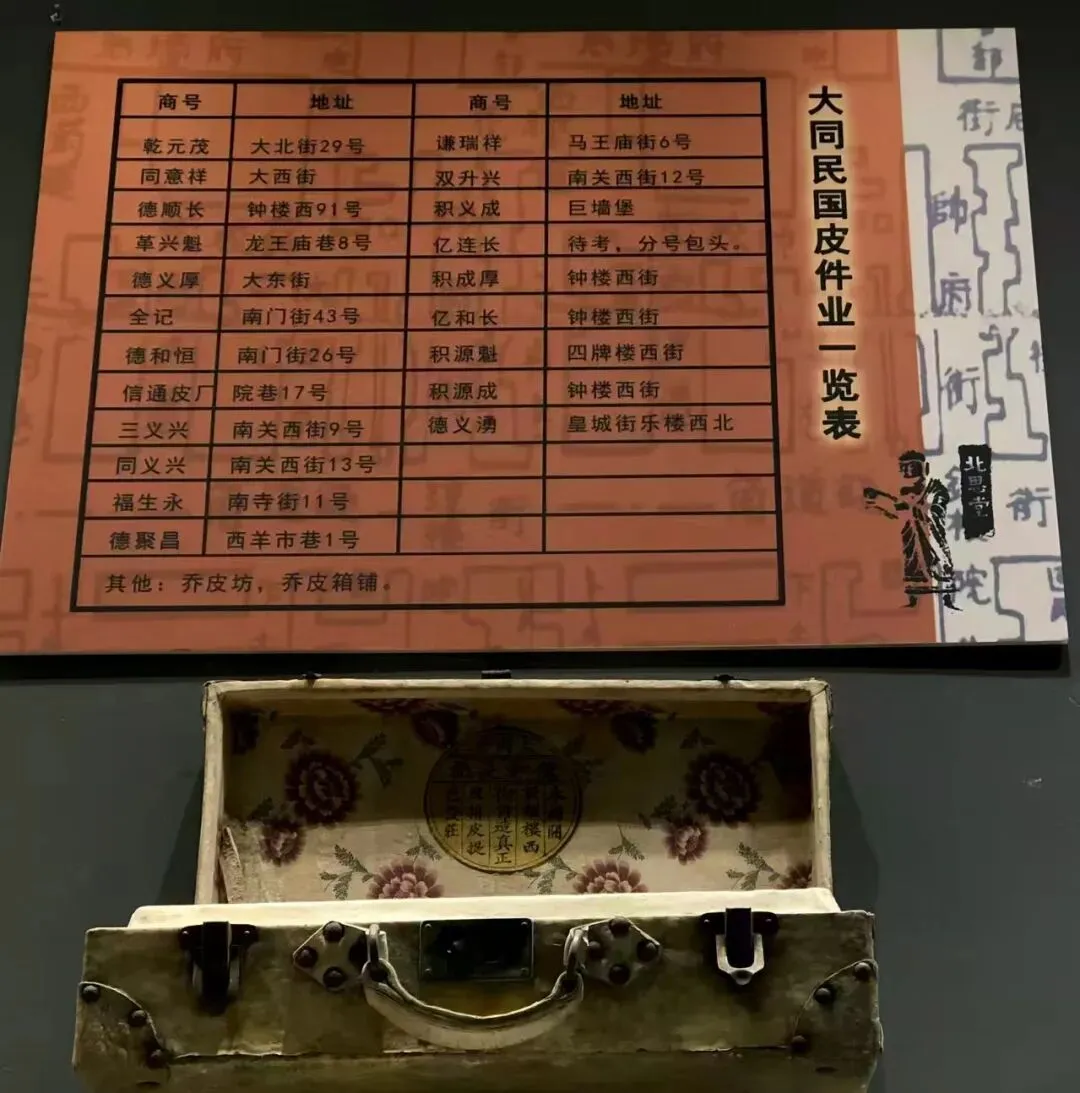 大同民国皮件业一览表
商号 地址 商号 地址
乾元茂 大北街29号 谦瑞祥 马王庙街6号
同意祥 大西街 双升兴 南关西街12号
德顺长 钟楼西91号 积义成 巨墙堡
革兴魁 龙王庙巷8号 亿连长 待考，分号包头。
德义厚 大东街 积成厚 钟楼西街
全记 南门街43号 亿和长 钟楼西街
德和恒 南门街26号 积源魁 四牌楼西街
信通皮厂 院巷17号 积源成 钟楼西街
三义兴 南关西街9号 德义湧 皇城街乐楼西北
同义兴 南关西街13号
福生永 南寺街11号
德聚昌 西羊市巷1号
其他：乔皮坊，乔皮箱铺。
北思堂
部
街
帥府街
街
院
樓西
造真正
皮提
莊